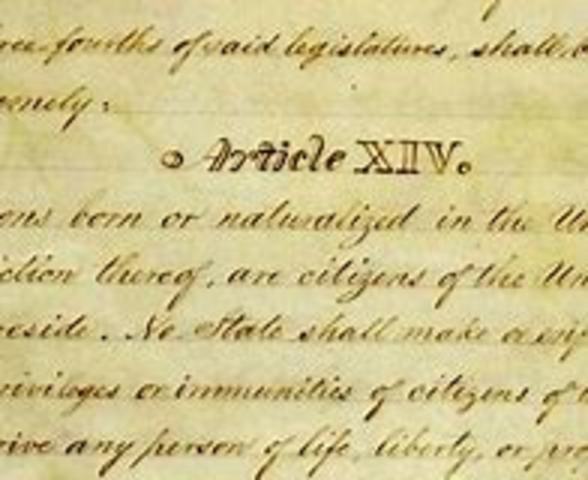 ree fourths of said legislatures, shall b
amely:
Article XIV.
ons born or naturalized in the Un
iction thereof, are citizens of the Un
reside. No State shall make or enf
rivileges or immunities of citizens of t
rive any person of life, liberty, or pro